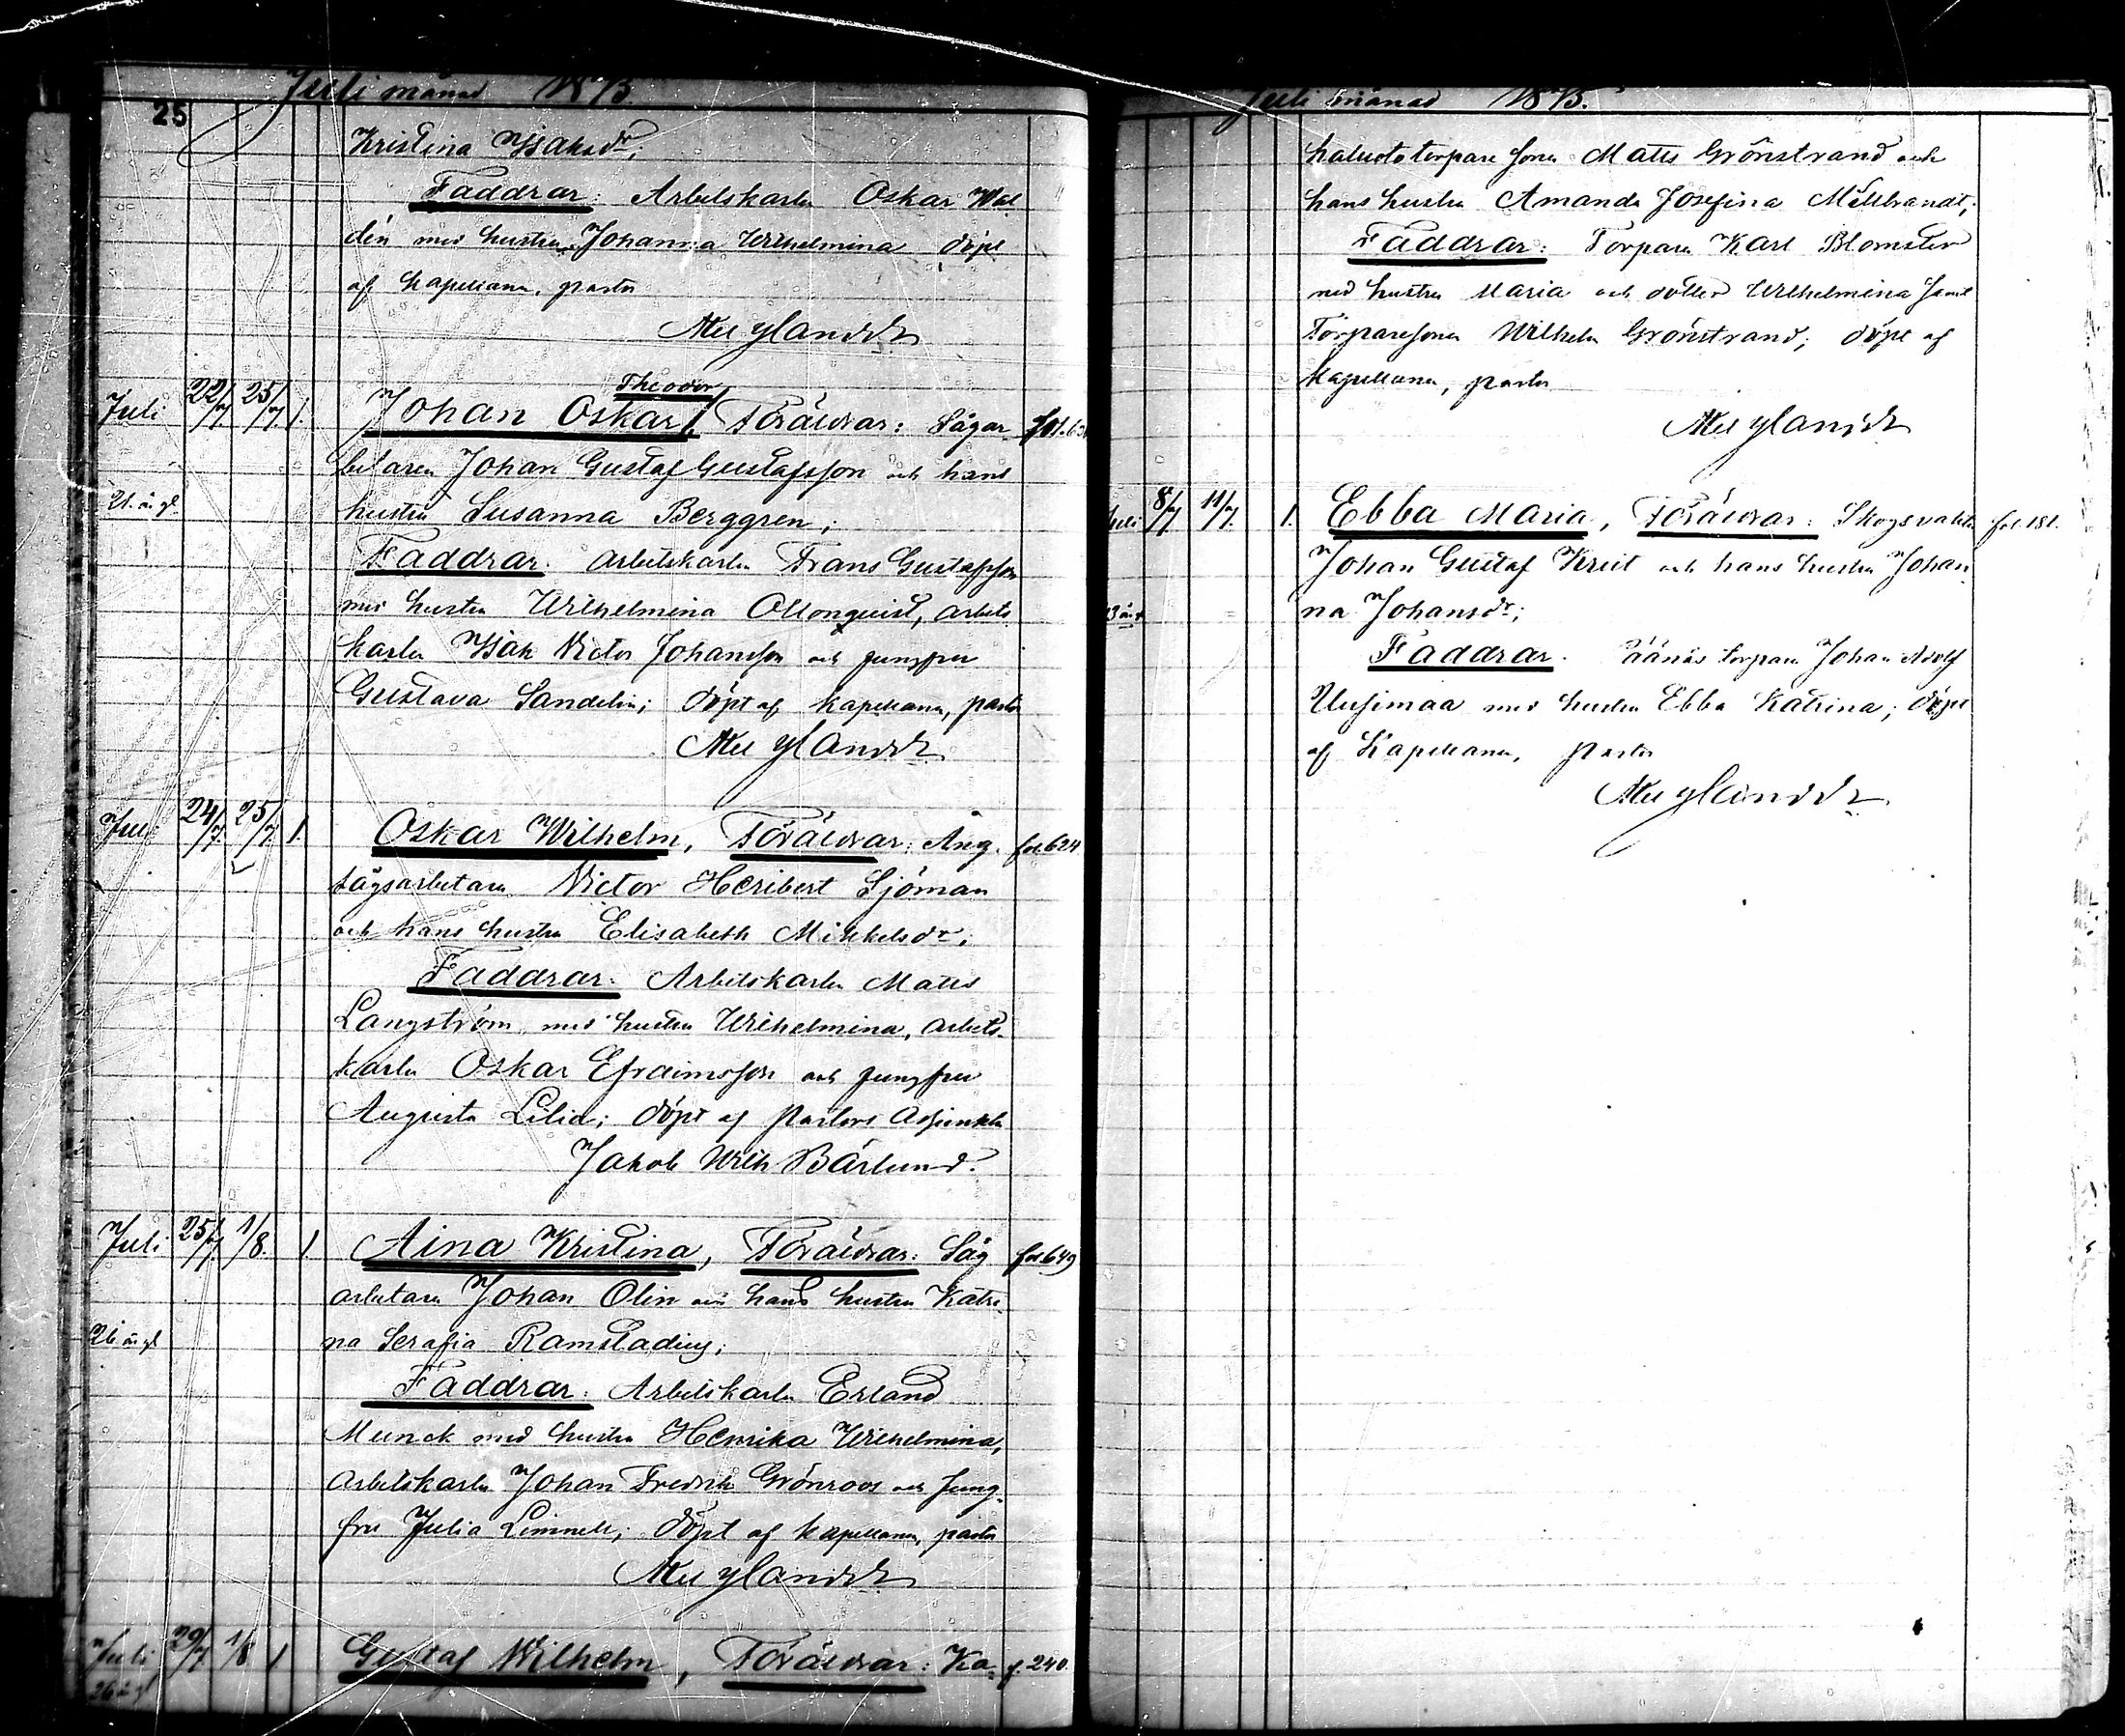 Juli månad 1875
25
Kristina Isaksdr;
Faddrar: Arbetskarln Oskar Wal
dén med hustru Johanna Wilhelmina döpt
af kapellanen, pastor
Theodor
Juli 22/7. 25/7. 1. Johan Oskar, Föräldrar: Sågar
betaren Johan Gustaf Gustafsson och hans
21. år gl. hustru Susanna Berggren;
Faddrar. Arbetskarln Frans Gustafsson
med hustru Wilhelmina Ollonquist, arbets
karln Isak Victor Johansson och jungfru
Gustava Sandelin; döpt af kapellanen, pastor
Juli 24/7. 25/7. 1. Oskar Wilhelm, Föräldrar: Ång. fol. 624.
sågsarbetaren Victor Heribert Sjöman
och hans hustru Elisabeth Mikkelsdr;
Faddrar: Arbetskarln Matts
Langström, med hustru Wilhelmina, arbets-
karln Oskar Efraimsson och jungfru
Augusta Lilia; döpt af Pastors Adjunkten
Jakob Wilh Bärlund.
Juli 25/7. 1/8. 1 Aina Kristina, Föräldrar: Såg fol 649
arbetaren Johan Olin och hans hustru Katri-
26 år gl na Serafia Ramstadius;
Faddrar: Arbetskarln Erland
Munck med hustru Henrika Wilhelmina,
Arbetskarln Johan Fredrik Grönroos och Jung-
fru Julia Linnell; döpt af kapellanen, pastor
Juli 29/7. 1/8 1 Gustaf Wilhelm, Föräldrar: Ka- f. 240.
26 år gl
Juli månad 1875.
haluoto torpare sonen Matts Grönstrand och
hans hustru Amanda Josefina Millbrandt;
Faddrar: Torparen Karl Blomster
med hustru Maria och dotter Wilhelmina samt
Torparesonen Wilhelm Grönstrand; döpt af
Kapellanen, pastor
Juli 8/7 11/7. 1. Ebba Maria, Föräldrar: Skogsvakten fol. 181.
Johan Gustaf Kreit och hans hustru Johan
na Johansdr;
Faddrar. Torparen Johan Adolf
Uusimaa med hustru Ebba Katrina; döpt
af Kapellanen, Pastor